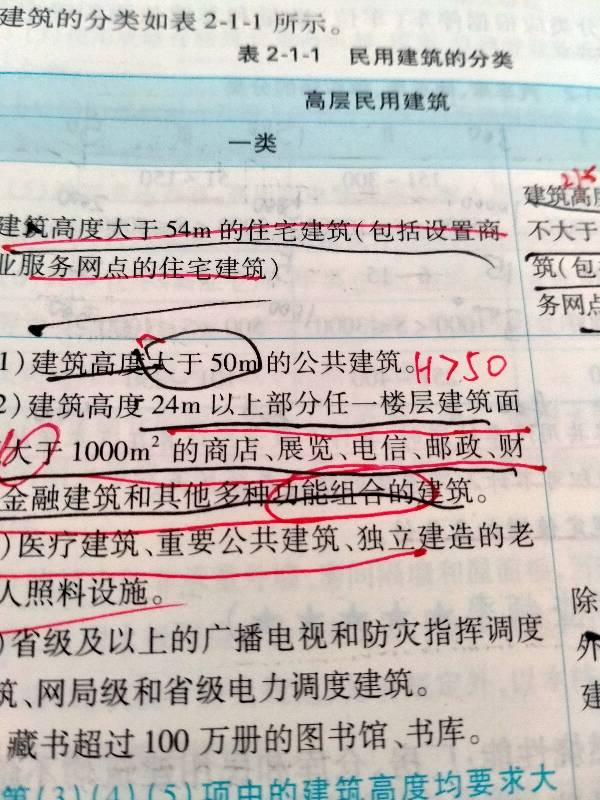 建筑的分类如表 2-1-1 所示。
表 2-1-1 民用建筑的分类
高层民用建筑
一类
建筑高度大于 54m 的住宅建筑(包括设置商
业服务网点的住宅建筑)
建筑高度
不大于
筑(包括
务网点
1)建筑高度大于 50m 的公共建筑。H>50
2)建筑高度 24m 以上部分任一楼层建筑面
大于 1000m² 的商店、展览、电信、邮政、财
金融建筑和其他多种功能组合的建筑。
)医疗建筑、重要公共建筑、独立建造的老
人照料设施。
)省级及以上的广播电视和防灾指挥调度
筑、网局级和省级电力调度建筑。
藏书超过 100 万册的图书馆、书库。
除
外
建
第(3)(4)(5)项中的建筑高度均要求大